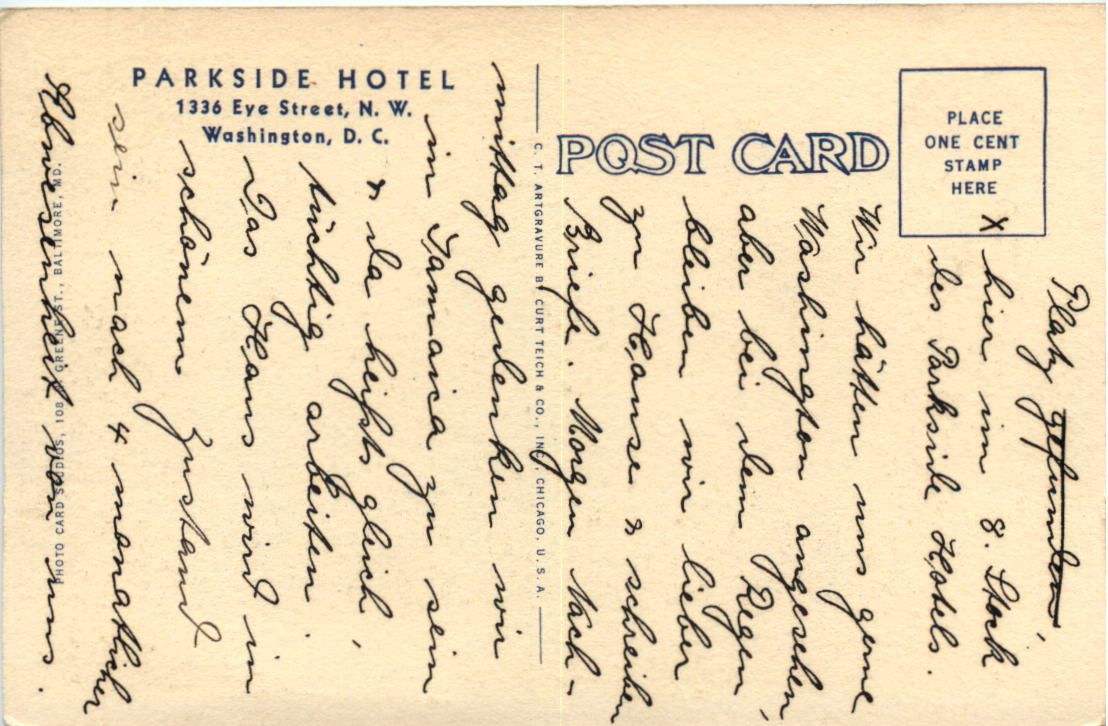 PARKSIDE HOTEL
1336 Eye Street, N. W.
Washington, D. C.
POST CARD
PLACE
ONE CENT
STAMP
HERE
C. T. ARTGRAVURE BY CURT TEICH & CO., INC., CHICAGO, U. S. A.
PHOTO CARD STUDIOS, 108 GREENE ST., BALTIMORE, MD.
Platz gefunden,
x hier im 8. Stock
des Parkside Hotels.
Wir hätten uns gerne
Washington angesehen
aber bei dem Regen,
bleiben wir lieber
zu Hause & schreiben
Briefe. Morgen Nach-
mittag gedenken wir
in Jammaica zu sein
& da heißts gleich,
tüchtig arbeiten.
Das Haus wird in
schönem Zustand
sein nach 4 monatlicher
Abwesenheit von uns.